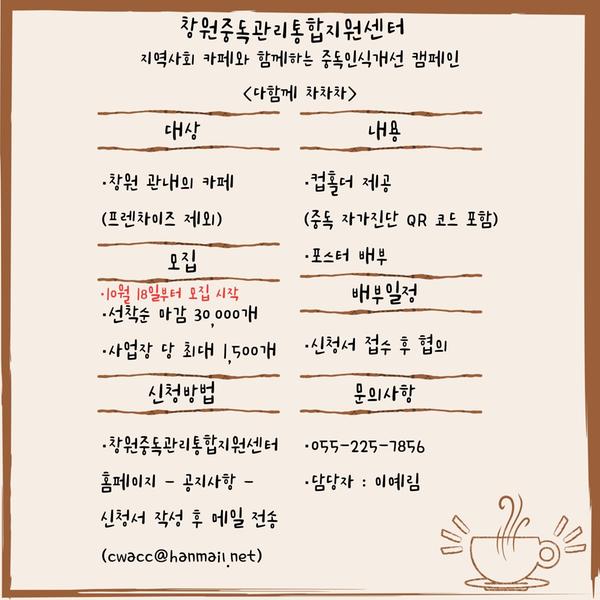 창원중독관리통합지원센터
지역사회 카페와 함께하는 중독인식개선 캠페인
<다함께 차차차>
대상
·창원 관내의 카페
(프렌차이즈 제외)
모집
·10월 18일부터 모집 시작
·선착순 마감 30,000개
·사업장 당 최대 1,500개
신청방법
·창원중독관리통합지원센터
홈페이지 - 공지사항 -
신청서 작성 후 메일 전송
(cwacc@hanmail.net)
내용
·컵홀더 제공
(중독 자가진단 QR 코드 포함)
·포스터 배부
배부일정
·신청서 접수 후 협의
문의사항
·055-225-7856
·담당자 : 이예림